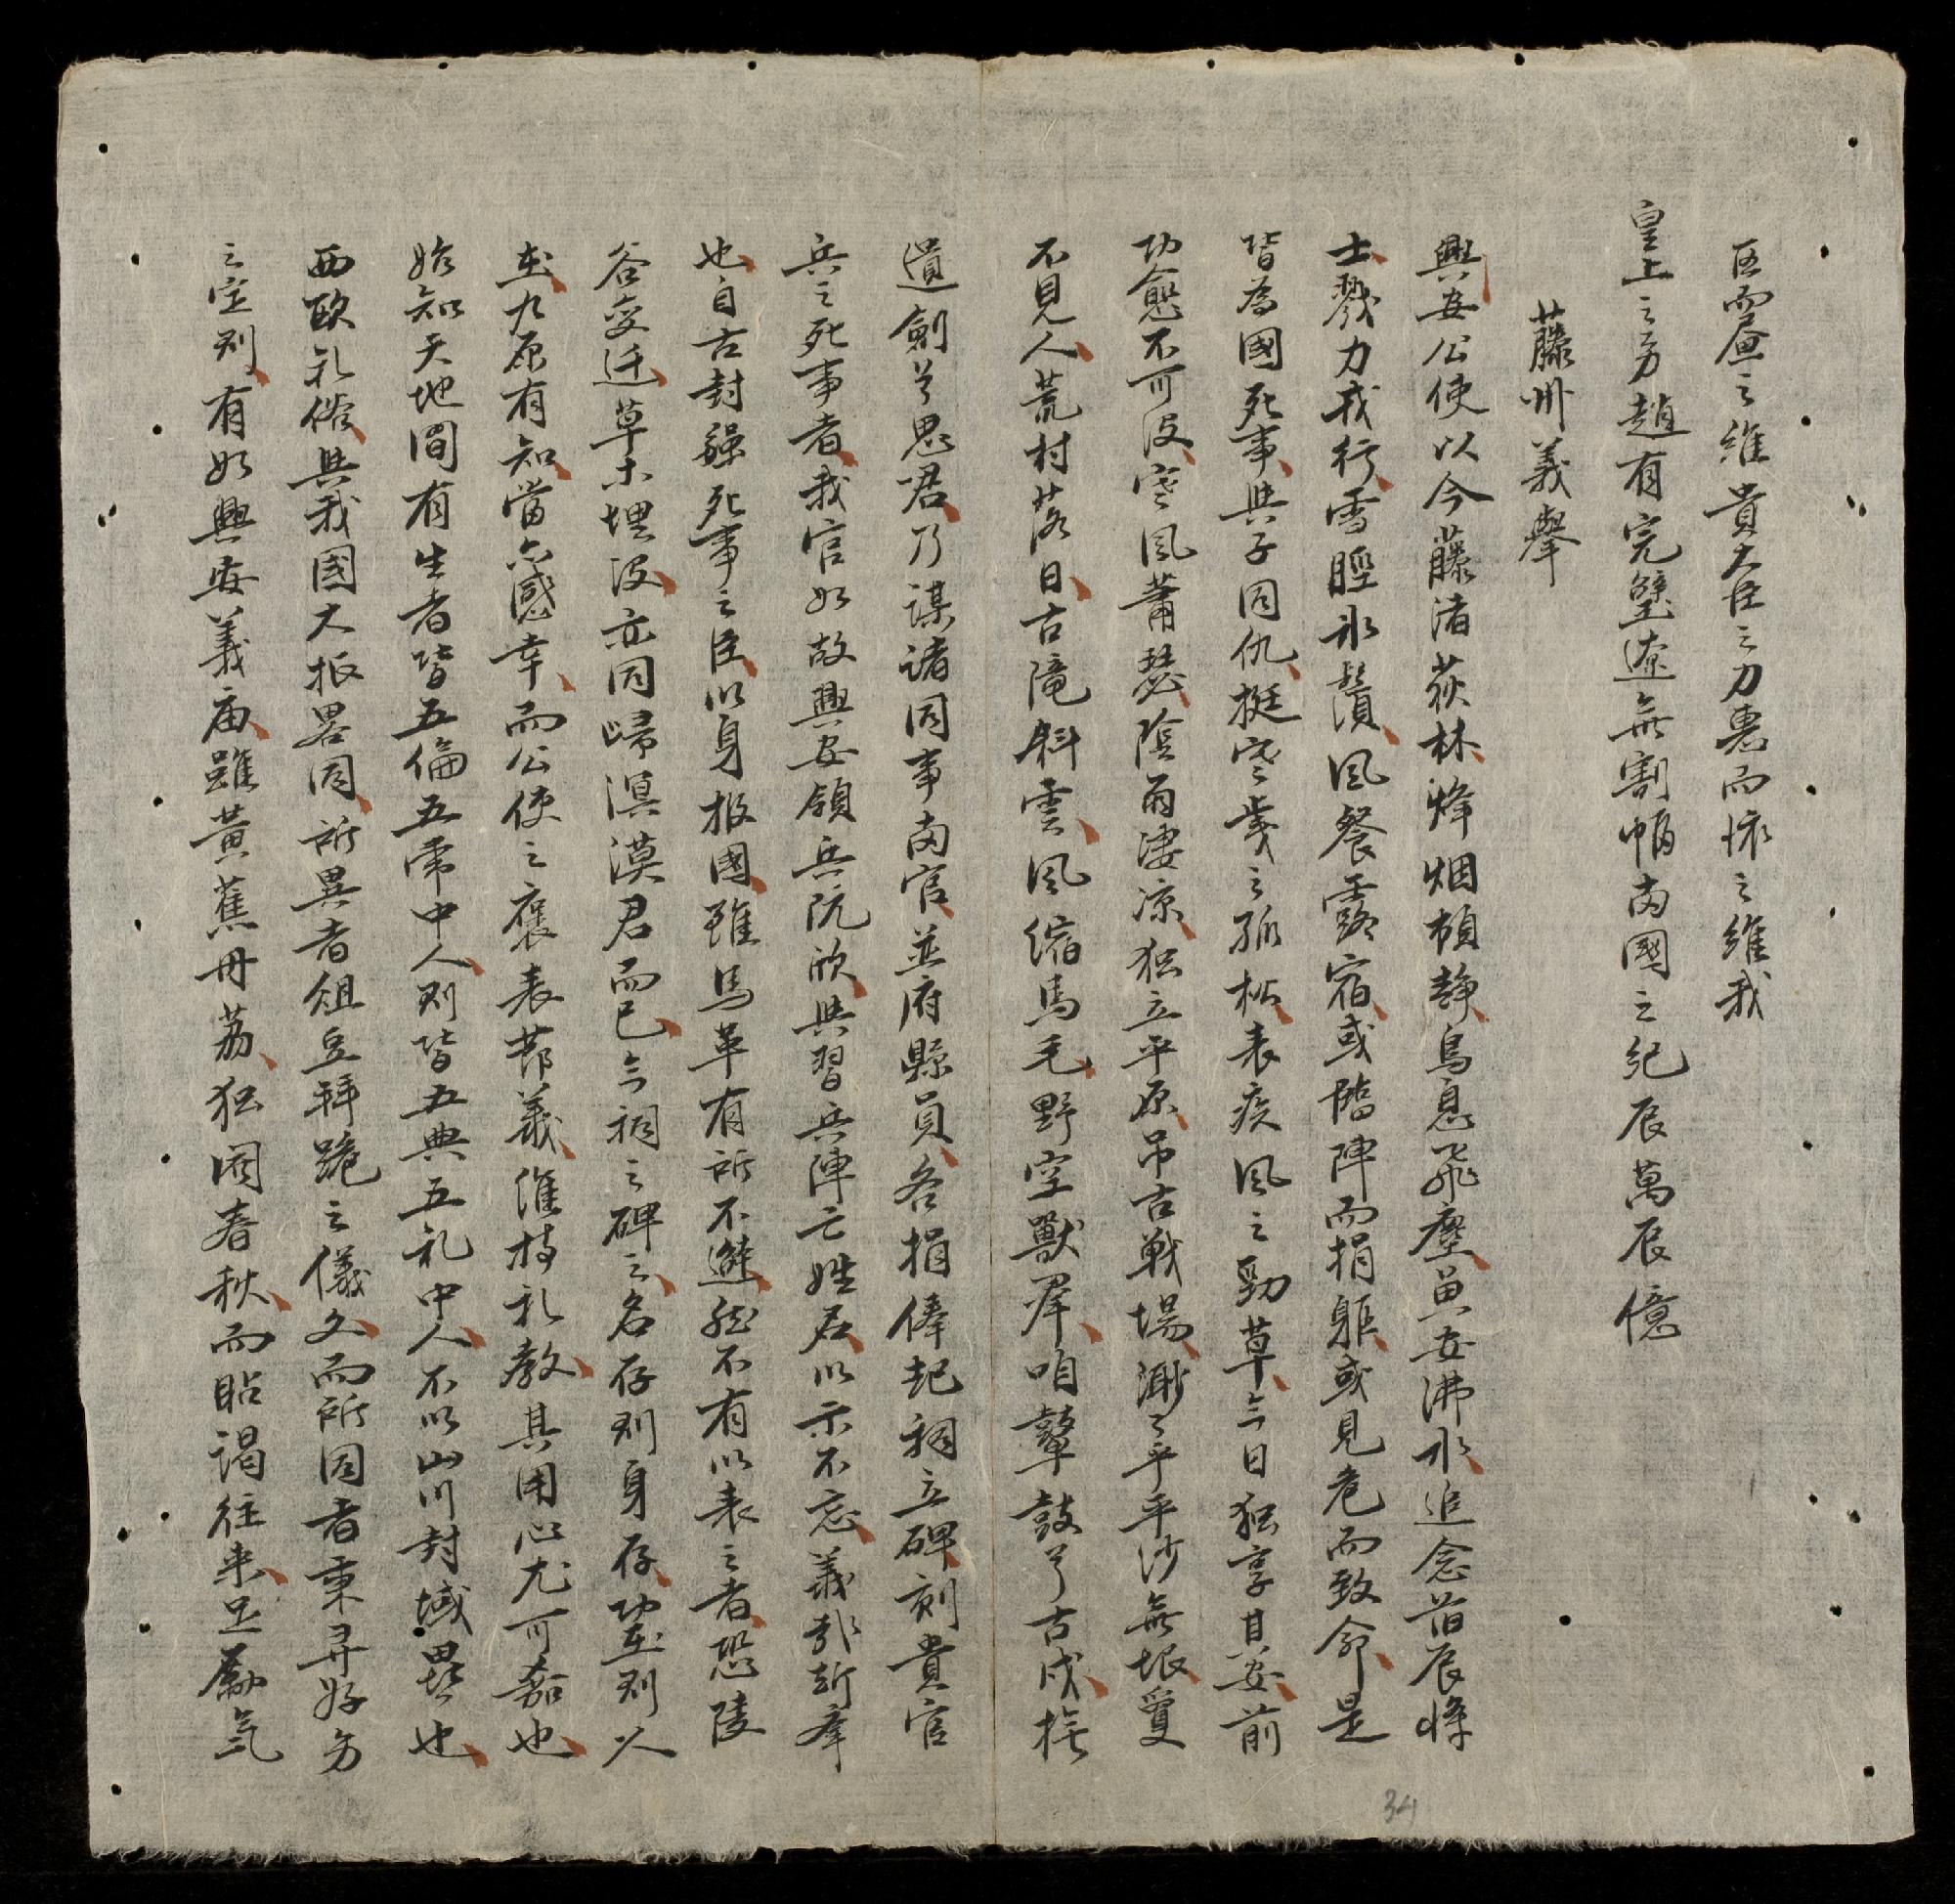 臣而奮之維貴大臣之力惠而懷之維我
皇上之易趙有完璧遼無割幅両國之紀辰萬辰億
藤州義擧
興安公使以今藤渚荻林烽烟頓静烏息飛塵黄安沸水追念昔辰將
士戮力我行雪脛氷鬚風餐露宿或臨陣而捐軀或見危而致命是
皆為國死事與子同仇挺寒歲之孤松表疾風之勁草今日独享其安前
功愈不可没寒風蕭瑟陰雨凄凉独立平原吊古戦場渺々乎平沙無垠敻
不見人荒村落日古隴斜雲風縮馬毛野空獸群咱鼙鼓兮古戍撫
遺劍兮思君乃謀諸同事両官並府縣員各捐俸起祠立碑刻貴官
兵之死事者我官如故興安領兵阮欣與習兵陣亡姓名以示不忘義
也自古封疆死事之臣以身报國雖馬革有所不避然不有以表之者恐陵
谷变迁草木埋没亦同歸溟漠君而已今祠之碑之名存则身存堅则以
在九原有知當亦感幸而公使之褒表節義維持礼教其用心尤可嘉也
始知天地間有生者皆五倫五常中人则皆五典五礼中人不以山川封域異也
西欧礼俗與我國大抵畧同所異者俎豆拜跪之儀文而所同者秉彛好
之定则有如興安義庙雖黄蕉丹荔独阅春秋而貼謁往来足勵氣